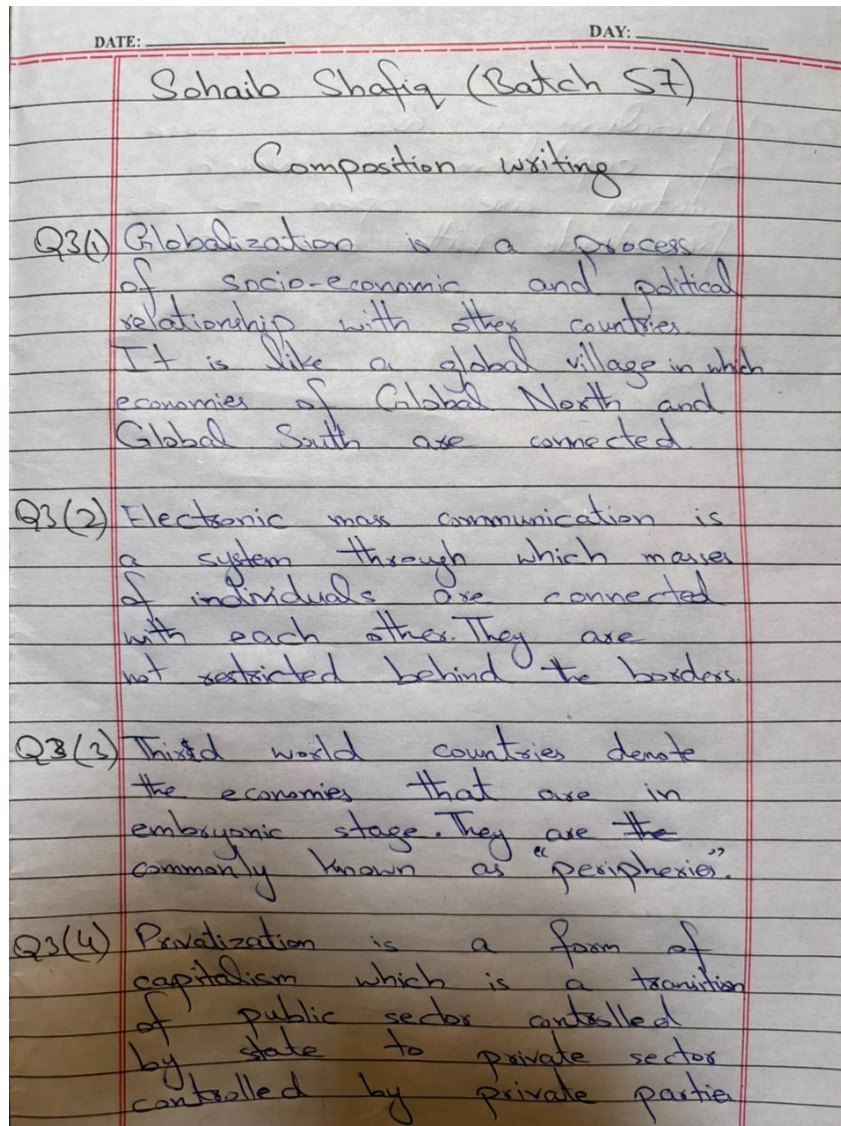 DATE: DAY:
Sohaib Shafiq (Batch 57)
Composition writing
Q3(1) Globalization is a process
of socio-economic and political
relationship with other countries.
It is like a global village in which
economies of Global North and
Global South are connected
Q3(2) Electronic mass communication is
a system through which masses
of individuals are connected
with each other. They are
not restricted behind the borders.
Q3(3) Third world countries denote
the economies that are in
embryonic stage. They are the
commonly known as "peripheries".
Q3(4) Privatization is a form of
capitalism which is a transition
of public sector controlled
by state to private sector
controlled by private partie